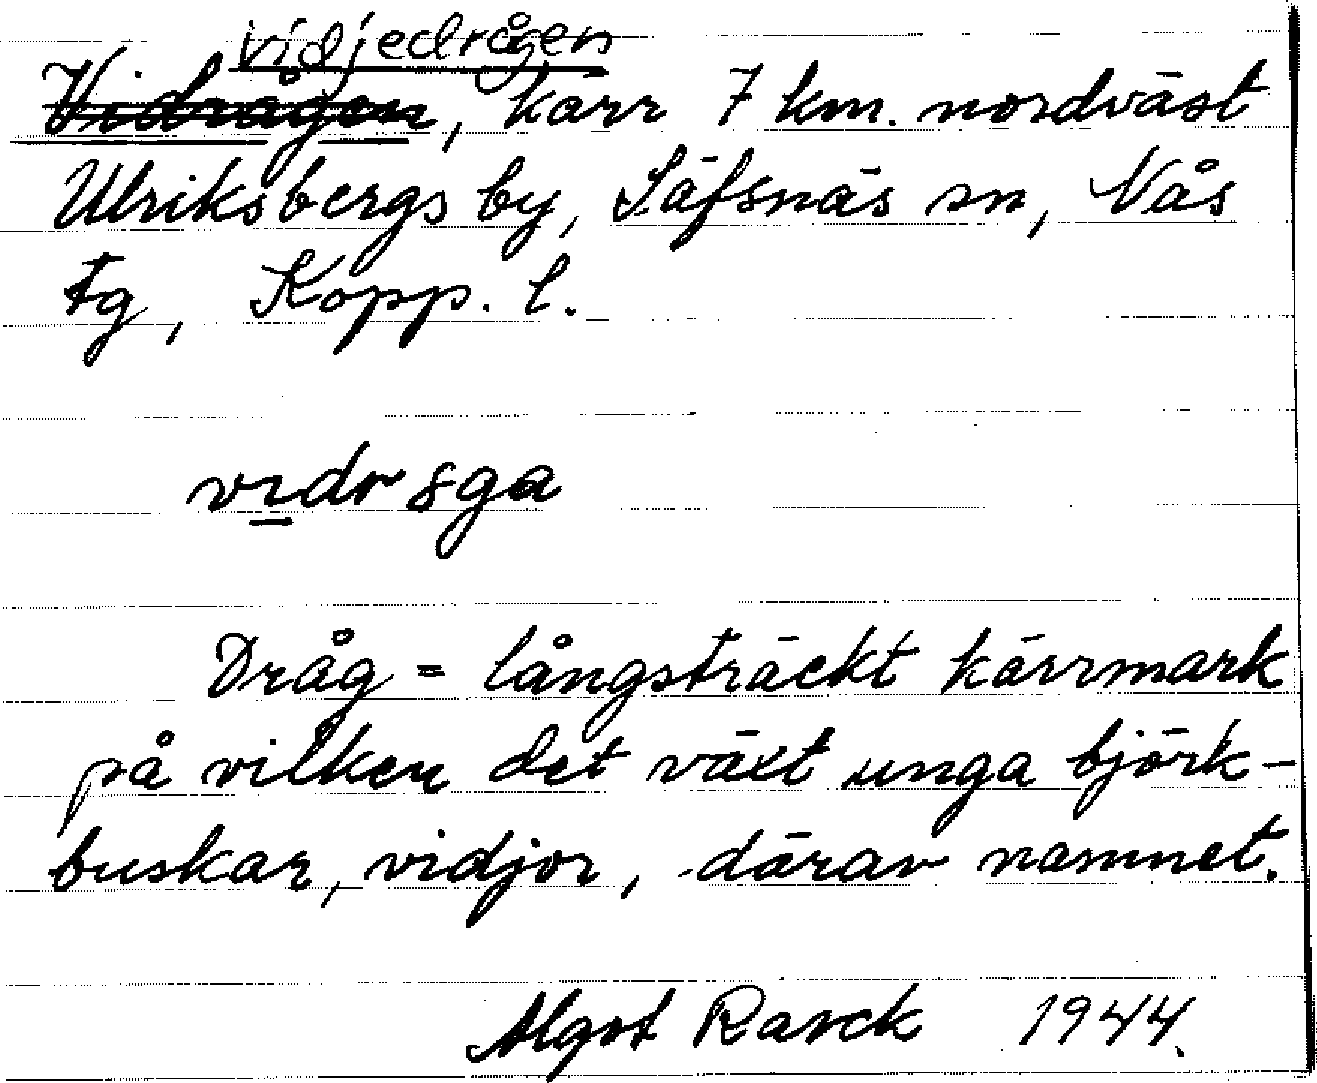 vidjedrågen
Vidrågen, kärr 7 km. nordväst
Ulriksbergs by, Säfsnäs sn, Nås
tg, Kopp. l.
vıdr8ga
Dråg = långsträckt kärrmark
på vilken det växt unga björk-
buskar, vidjor, därav namnet.
Algot Rarck 1944.